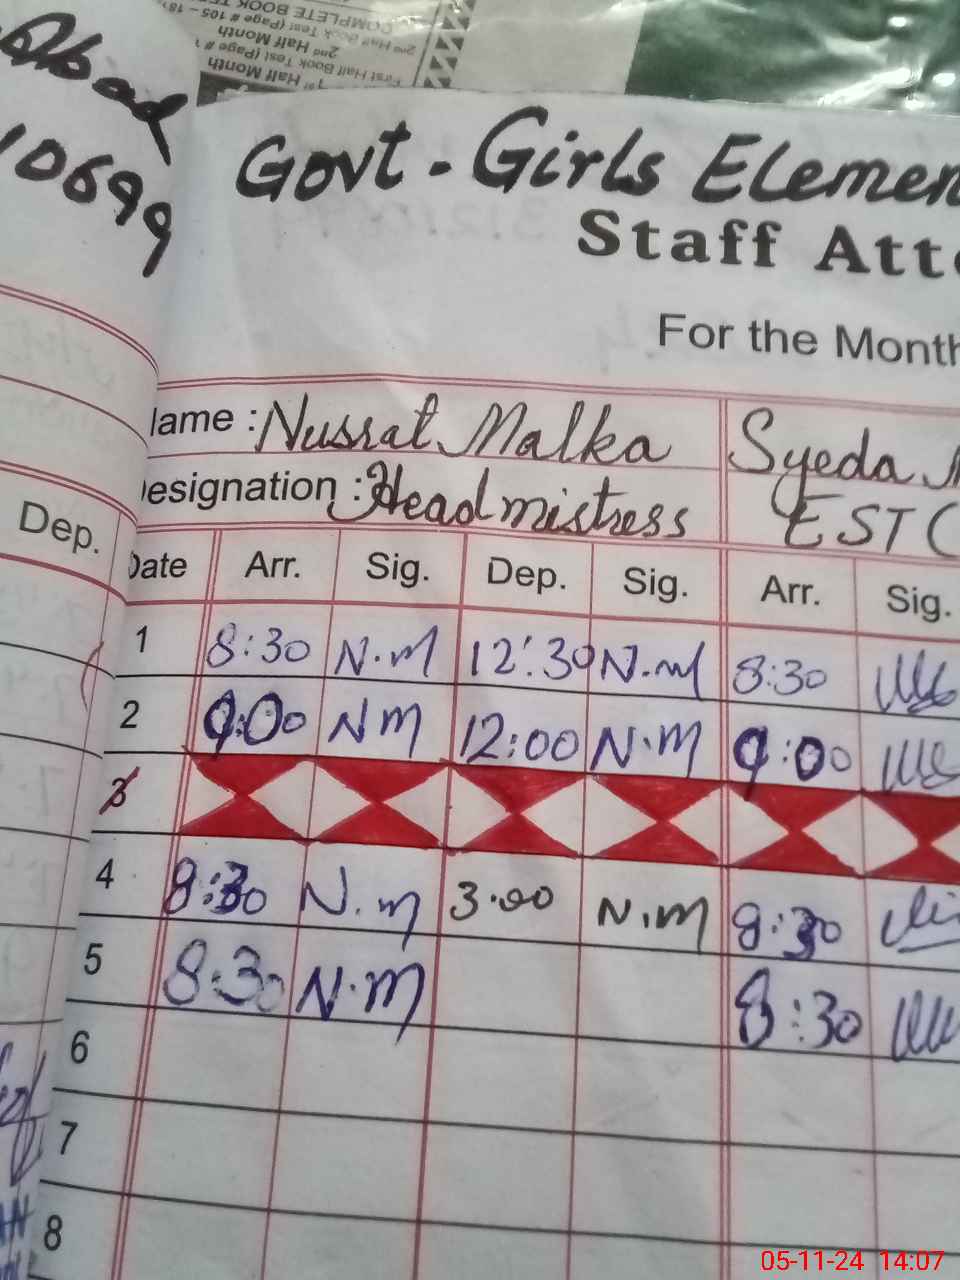 COMPLETE BOOK
2nd Half Book Test (Page # 105 - 181
2nd Half Month
First Half Book Test (Page #
1st Half Month
Abad
10699
Govt - Girls Elemen
Staff Att
For the Month
Name : Nussrat Malka Syeda
Designation : Headmistress EST (
Dep. Date Arr. Sig. Dep. Sig. Arr. Sig.
1 8:30 N.M 12:30 N.M 8:30
2 9:00 NM 12:00 N.M 9:00
3
4 8:30 N.M 3.00 N.M 8:30
5 8:30 N.M 8:30
6
7
8
05-11-24 14:07